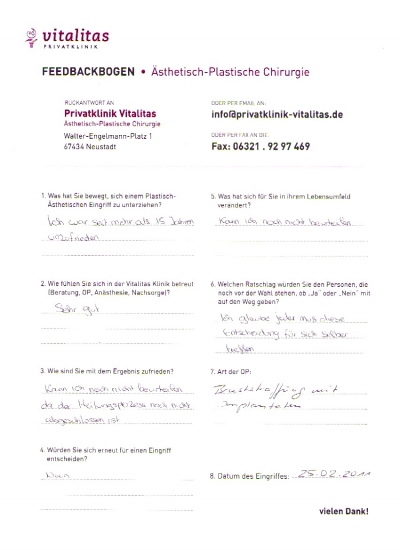 vitalitas
PRIVATKLINIK
FEEDBACKBOGEN • Ästhetisch-Plastische Chirurgie
RÜCKANTWORT AN
Privatklinik Vitalitas
Ästhetisch-Plastische Chirurgie
Walter-Engelmann-Platz 1
67434 Neustadt
ODER PER EMAIL AN:
info@privatklinik-vitalitas.de
ODER PER FAX AN DIE:
Fax: 06321 . 92 97 469
1. Was hat Sie bewegt, sich einem Plastisch-
Ästhetischen Eingriff zu unterziehen?
Ich war seit mehr als 15 Jahren
unzufrieden
2. Wie fühlen Sie sich in der Vitalitas Klinik betreut
(Beratung, OP, Anästhesie, Nachsorge)?
Sehr gut
3. Wie sind Sie mit dem Ergebnis zufrieden?
Kann ich noch nicht beurteilen
da der Heilungsprozess noch nicht
abgeschlossen ist
4. Würden Sie sich erneut für einen Eingriff
entscheiden?
Nein
5. Was hat sich für Sie in ihrem Lebensumfeld
verändert?
Kann ich noch nicht beurteilen
6. Welchen Ratschlag würden Sie den Personen, die
noch vor der Wahl stehen, ob „Ja“ oder „Nein“ mit
auf den Weg geben?
Ich glaube jeder muß diese
Entscheidung für sich selber
treffen
7. Art der OP:
Bruststraffung mit
Implantaten
8. Datum des Eingriffes: 25.02.2011
vielen Dank!